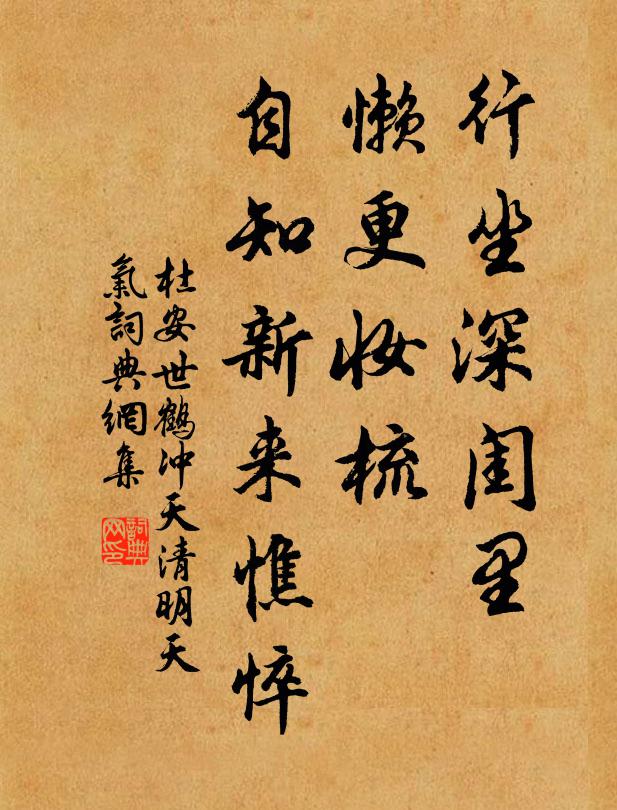 行坐深闺里
懒更妆梳
自知新来憔悴
杜安世鹤冲天清明天
氣詞典網集
詞典
网印